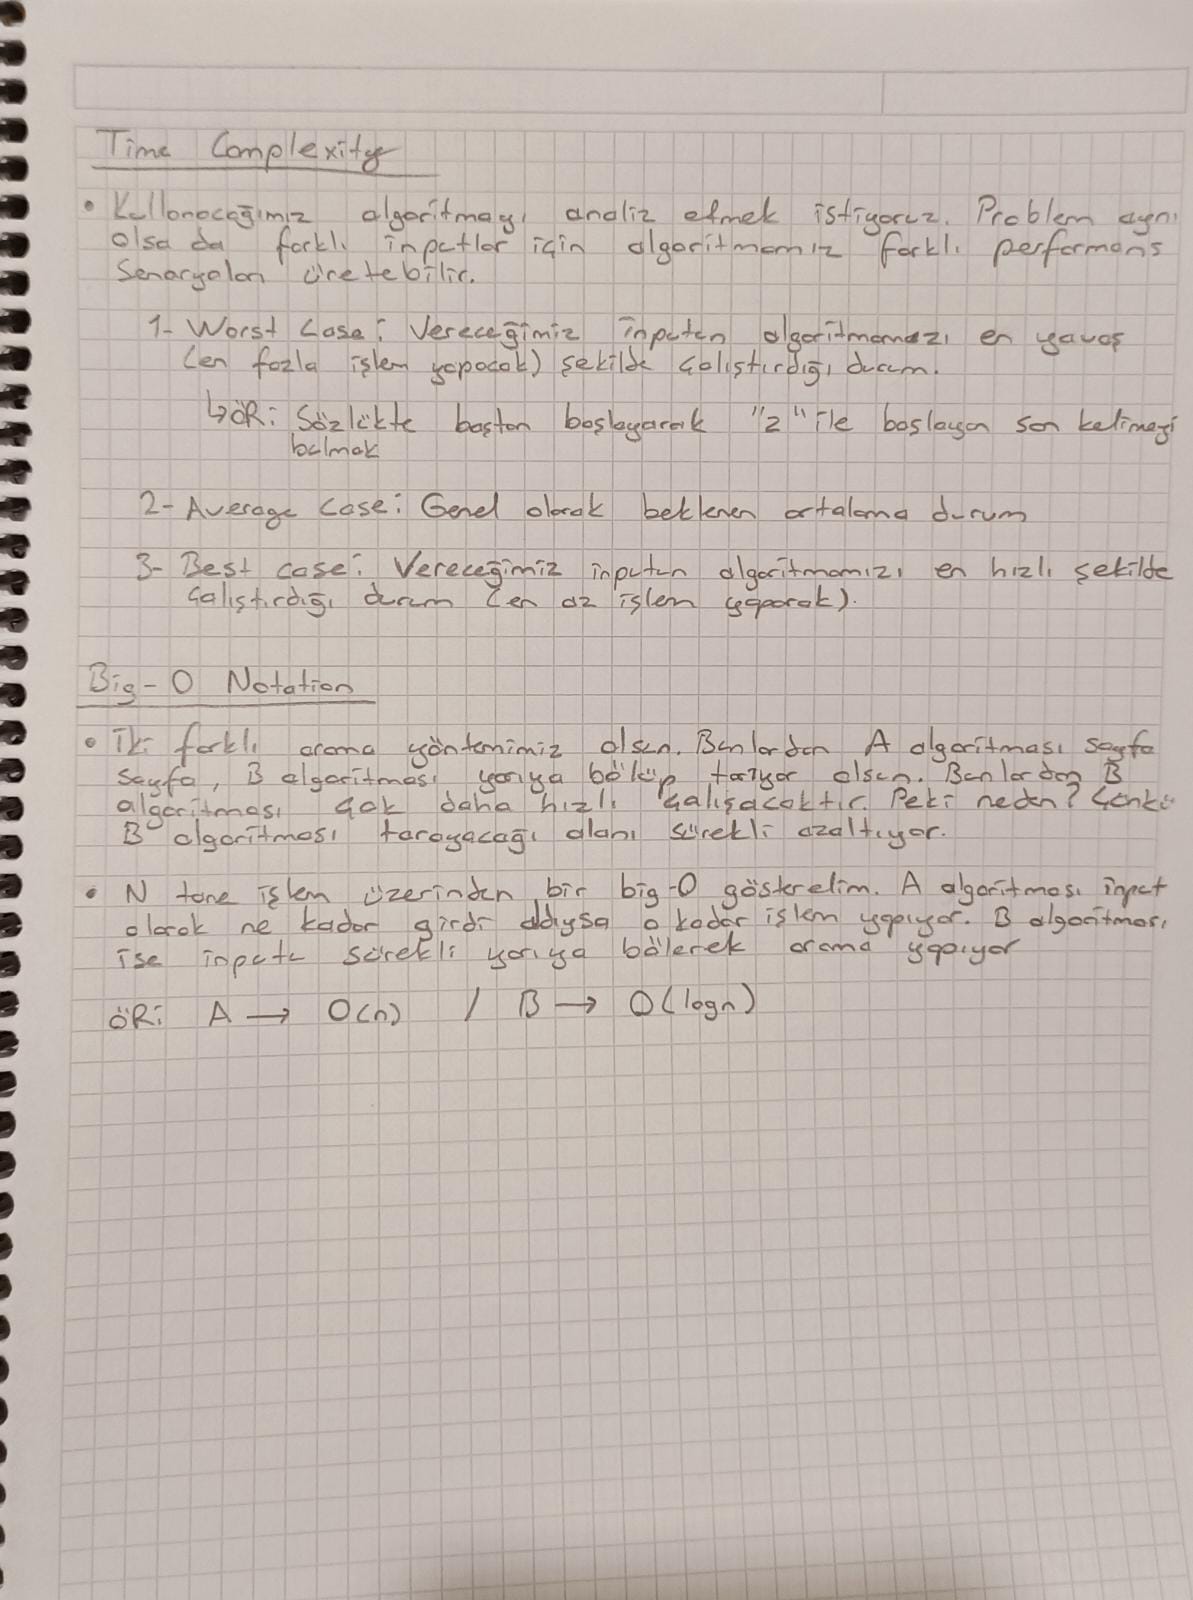 Time Complexity
• Kullanacağımız algoritmayı analiz etmek istiyoruz. Problem aynı
olsa da farklı inputlar için algoritmamız farklı performans
senaryoları üretebilir.
1- Worst Case: Vereceğimiz inputun algoritmamızı en yavaş
(en fazla işlem yapacak) şekilde çalıştırdığı durum.
↳ÖR: Sözlükte baştan başlayarak "z" ile başlayan son kelimeyi
bulmak
2- Average Case: Genel olarak beklenen ortalama durum
3- Best case: Vereceğimiz inputun algoritmamızı en hızlı şekilde
çalıştırdığı durum (en az işlem yaparak).
Big-O Notation
• İki farklı arama yöntemimiz olsun. Bunlardan A algoritması sayfa
sayfa, B algoritması yarıya bölüp tarıyor olsun. Bunlardan B
algoritması çok daha hızlı çalışacaktır. Peki neden? Çünkü
B algoritması tarayacağı alanı sürekli azaltıyor.
• N tane işlem üzerinden bir big-O gösterelim. A algoritması input
olarak ne kadar girdi aldıysa o kadar işlem yapıyor. B algoritması
ise inputu sürekli yarıya bölerek arama yapıyor
ÖR: A → O(n) / B → O(logn)